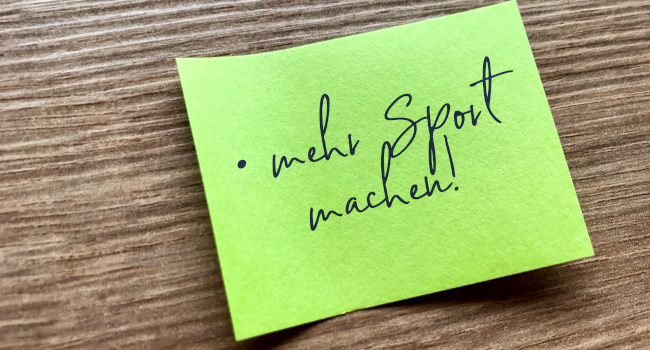 • mehr Sport
machen!